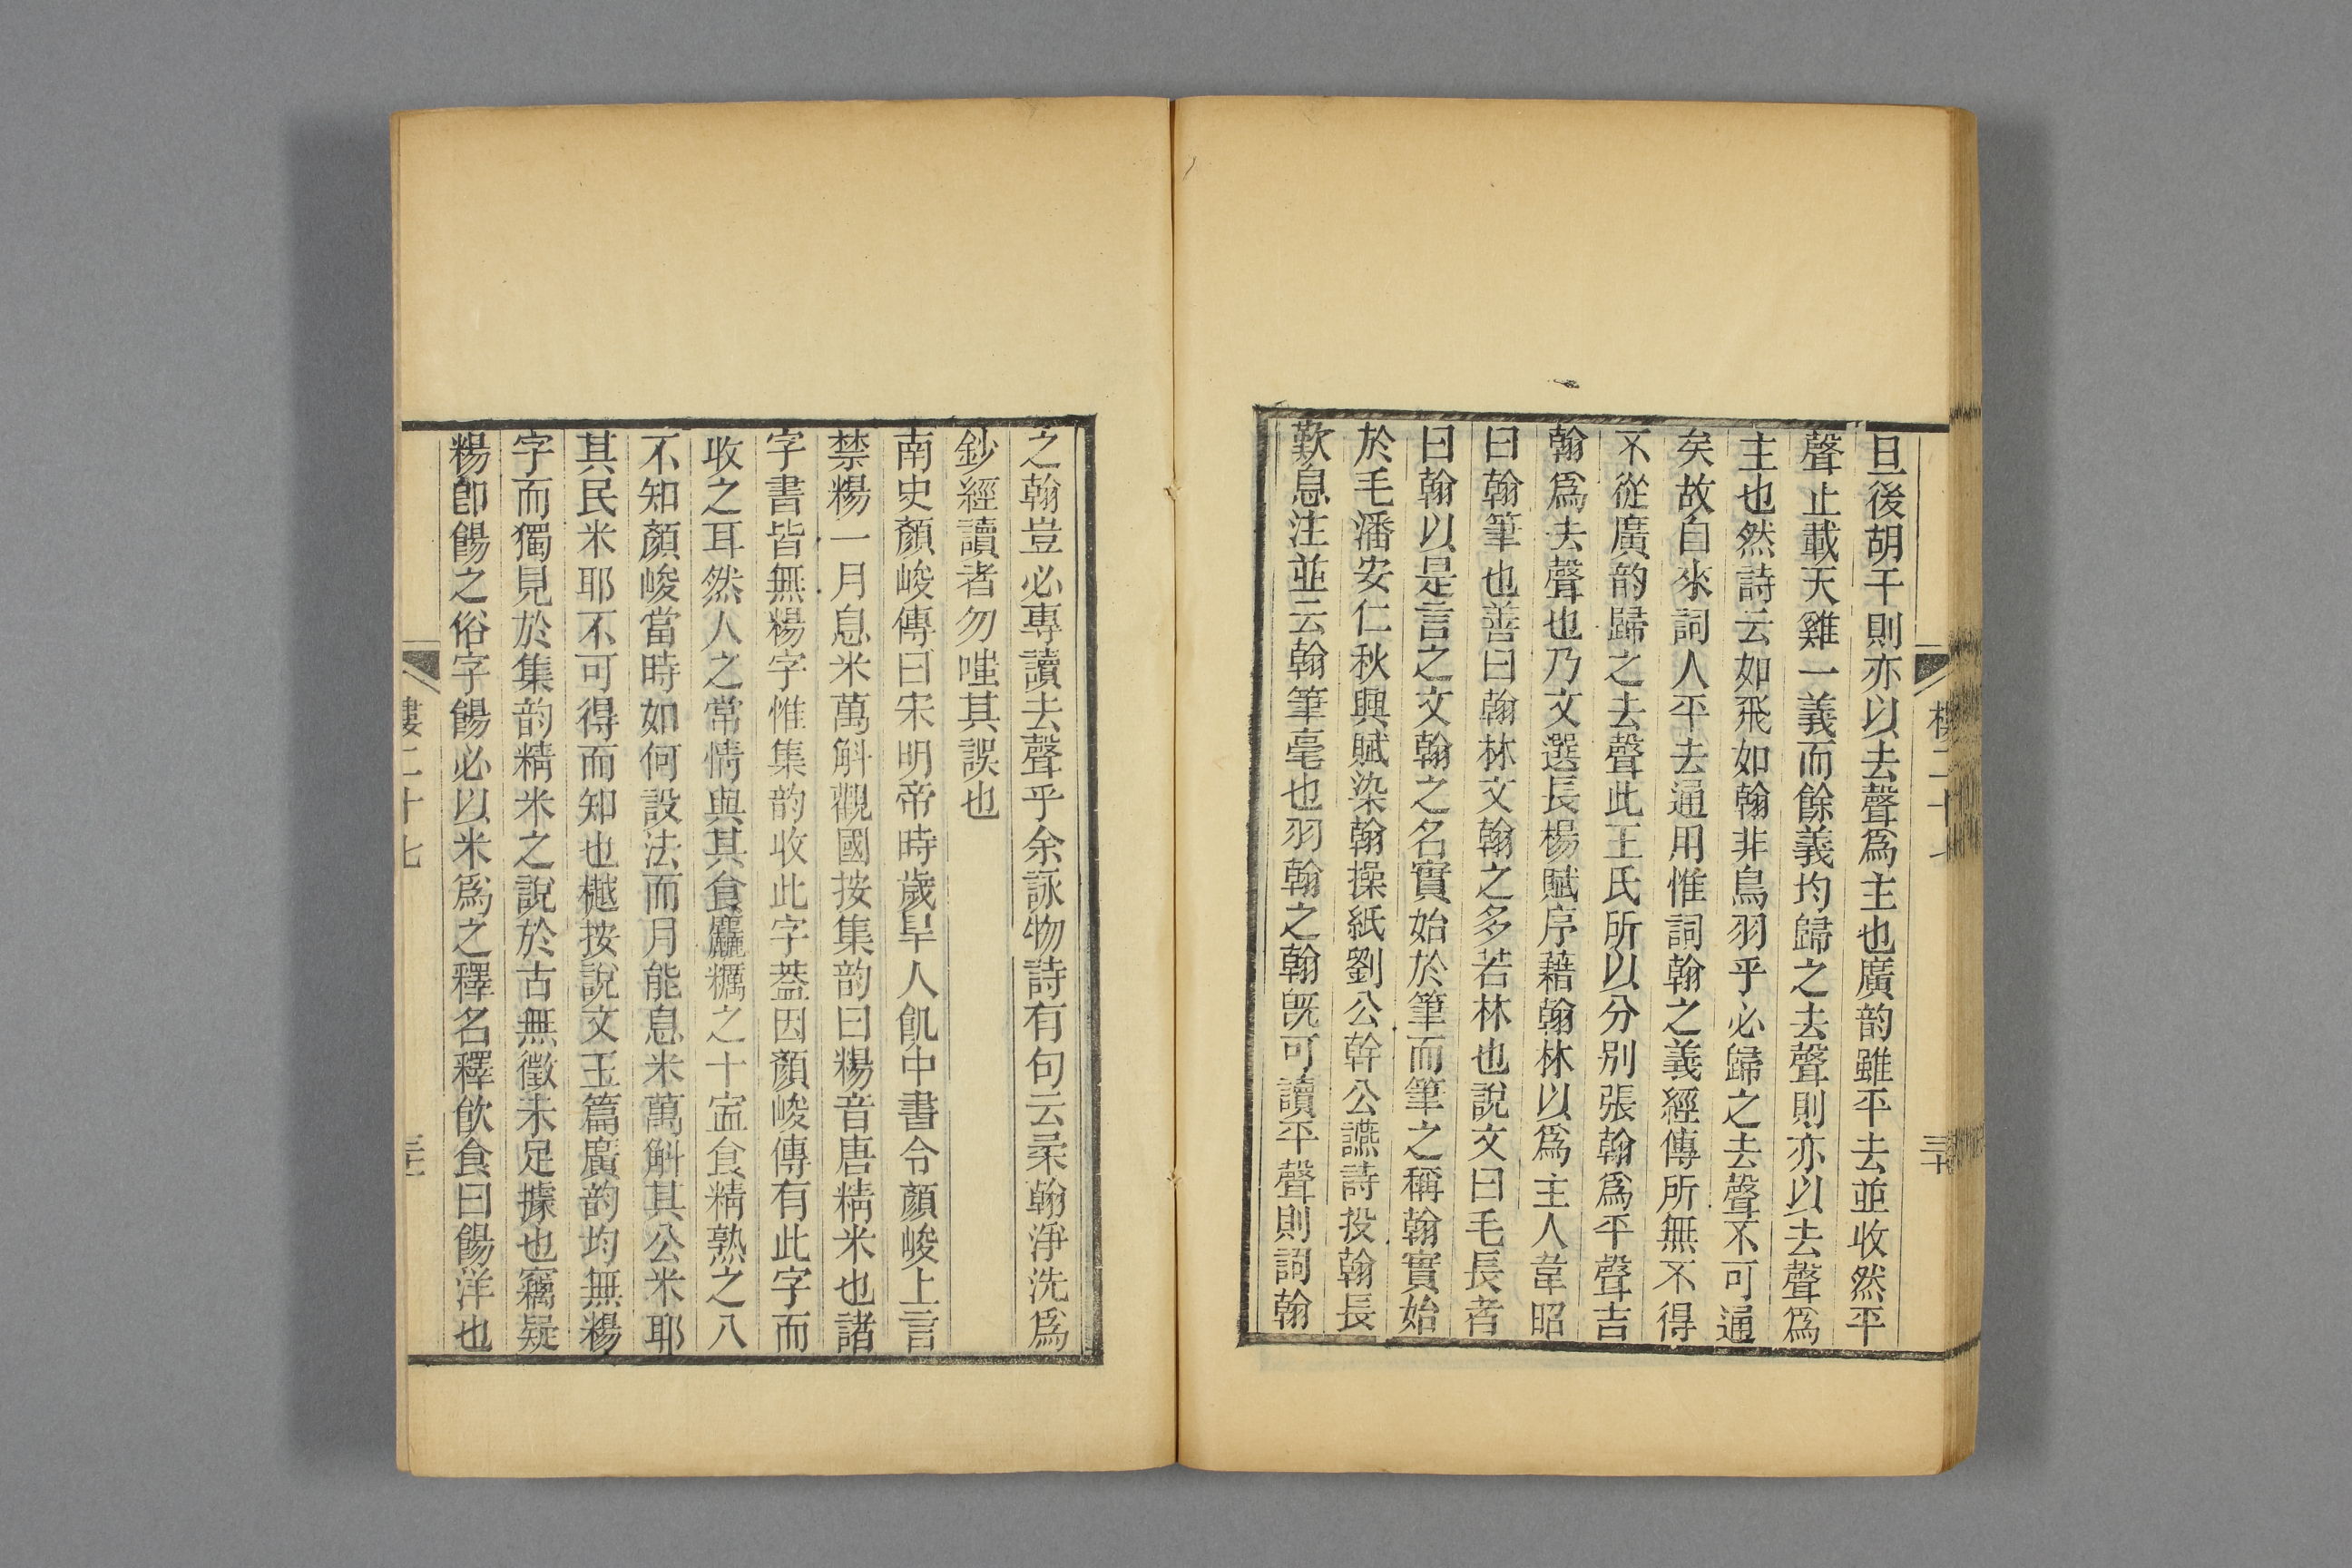 旦後胡干則亦以去聲爲主也廣韵雖平去並收然平
聲止載天雞一義而餘義均歸之去聲則亦以去聲爲
主也然詩云如飛如翰非鳥羽乎必歸之去聲不可通
矣故自來詞人平去通用惟詞翰之義經傳所無不得
不從廣韵歸之去聲此王氏所以分别張翰爲平聲吉
翰爲去聲也乃文選長楊賦序藉翰林以爲主人韋昭
曰翰筆也善曰翰林文翰之多若林也說文曰毛長者
曰翰以是言之文翰之名實始於筆而筆之稱翰實始
於毛潘安仁秋興賦染翰操紙劉公幹公讌詩投翰長
歎息注並云翰筆毫也羽翰之翰旣可讀平聲則詞翰
之翰豈必專讀去聲乎余詠物詩有句云柔翰淨洗爲
鈔經讀者勿嗤其誤也
南史顏峻傳曰宋明帝時歲旱人飢中書令顏峻上言
禁餳一月息米萬斛觀國按集韵曰餳音唐精米也諸
字書皆無餳字惟集韵收此字葢因顏峻傳有此字而
收之耳然人之常情與其食麤糲之十寍食精熟之八
不知顏峻當時如何設法而月能息米萬斛其公米耶
其民米耶不可得而知也樾按說文玉篇廣韵均無糃
字而獨見於集韵精米之說於古無徵未足據也竊疑
糃卽餳之俗字餳必以米爲之釋名釋飲食曰餳洋也
二十七
三十